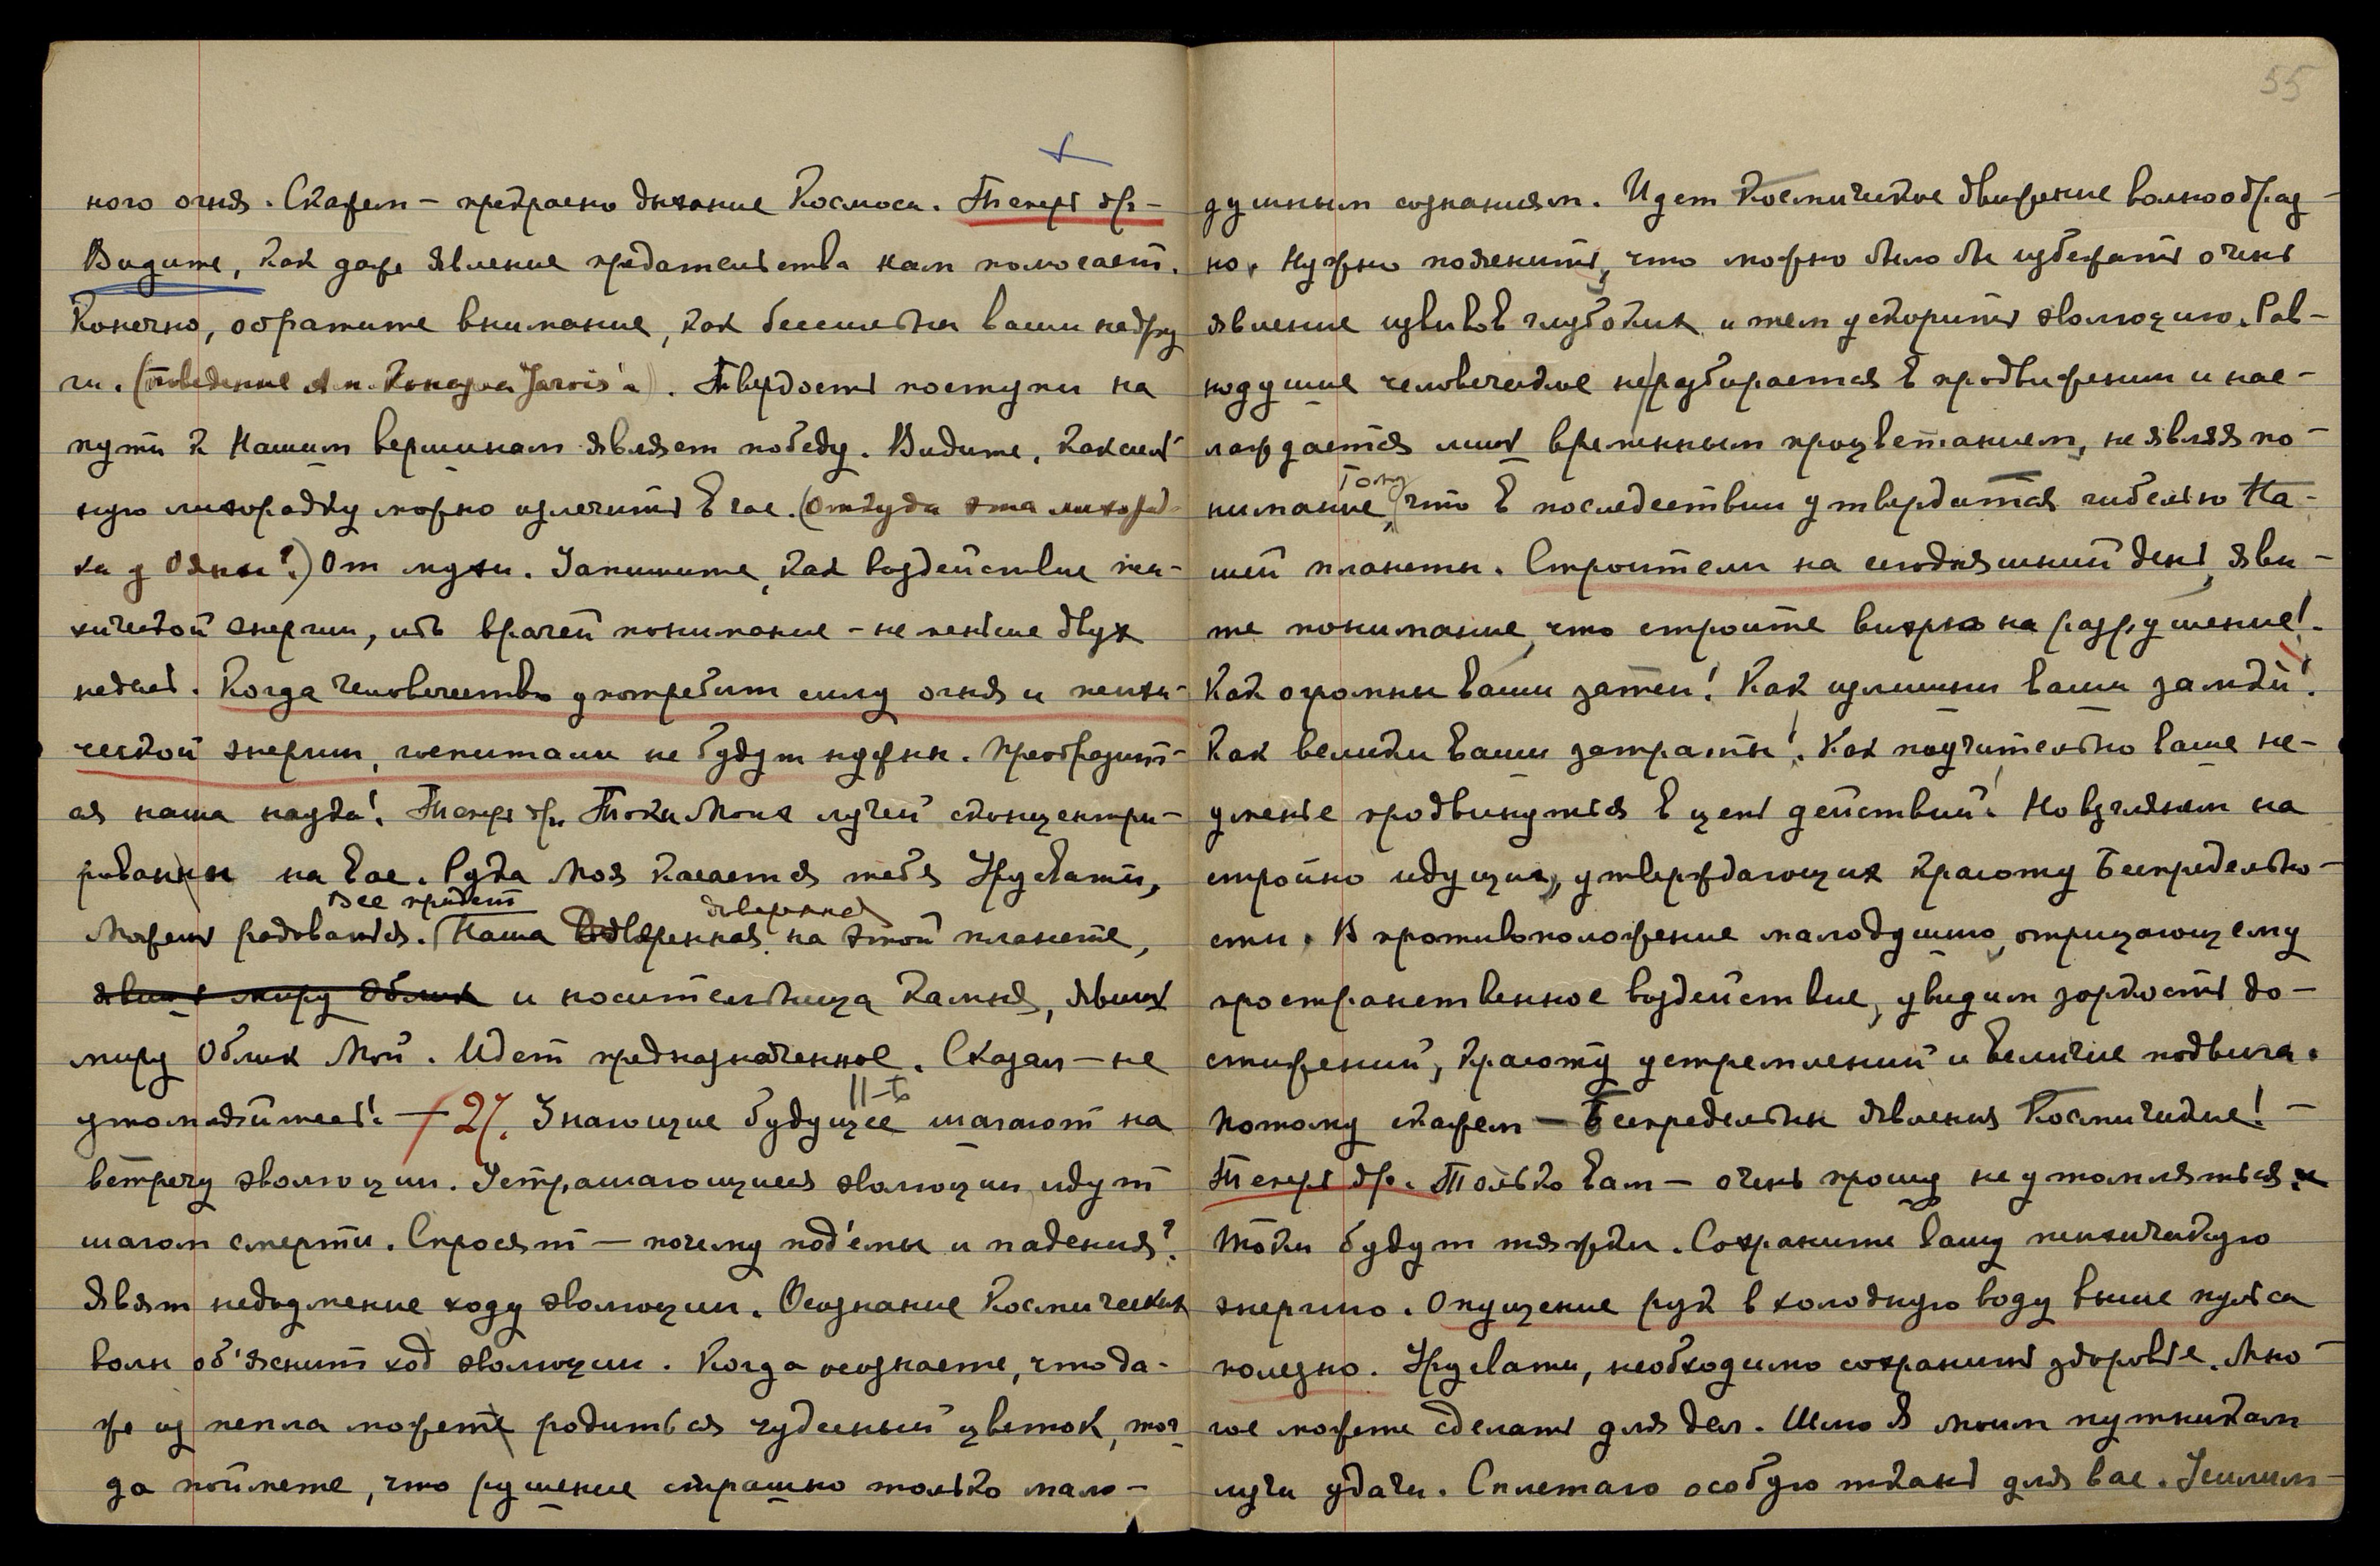 ного огня. Скажем — прекрасно дыхание Космоса. Теперь др-
Видите, как даже явление предательства нам помогает.
Конечно, обратите внимание, как бессильны ваши недру
ги. (поведение Ам. Консула Jarvis'а). Твердость поступи на
пути к Нашим вершинам являет победу. Видите, как силь
ную лихорадку можно излечить в час. (Откуда эта лихорад-
ка у Ояны?) От мухи. Запишите, как воздействие пси-
хической энергии, ибо врачей понимание — не меньше двух
недель. Когда человечество употребит силу огня и психи-
ческой энергии, госпитали не будут нужны. Преобразит-
ся наша наука! Теперь др. Токи Моих лучей сконцентри-
рованы на вас. Рука Моя касается тебя Урусвати,
Все придет доверенная
Можешь радоваться. Наша на этой планете,
явишь миру Облик и носительница Камня, явишь
миру Облик Мой. Идет предназначенное. Сказал — не
утомляйтесь! — 27. Знающие будущее шагают на
11-ь
встречу эволюции. Устрашающиеся эволюции идут
шагом смерти. Спросят — почему под'емы и падения?
Явят недоумение ходу эволюции. Осознание Космических
волн об'яснит ход эволюции. Когда осознаете, что да-
же из пепла может родиться чудесный цветок, тог
да поймете, что рушение страшно только мало-
55
душным сознаниям. Идет Космическое движение волнообраз-
но. Нужно пояснить, что можно было бы избежать очень
явление извивов глубоких и тем ускорить эволюцию. Рав-
нодушие человеческое не разбирается в продвижении и нас-
лаждается лишь временным процветанием, не являя по-
Тому
нимание, что в последствии утвердится гибелью На-
шей планеты. Строители на сегодняшний день, яви-
те понимание, что строите вихрь на разрушение!
Как огромны ваши затеи! Как излишни ваши замки!
Как велики ваши затраты! Как поучительно ваше не-
уменье продвинуться в цепь действий! Но взглянем на
стройно идущих, утверждающих красоту Беспредельно-
сти. В противоположение малодушию, отрицающему
пространственное воздействие, увидим зоркость до-
стижений, красоту устремлений и величие подвига.
Потому скажем — Беспредельны явления Космические! —
Теперь др. Только вам — очень прошу не утомляться.
Токи будут тяжки. Сохраните вашу психическую
энергию. Опущение рук в холодную воду выше пульса
полезно. Урусвати, необходимо сохранить здоровье. Мно-
гое можете сделать для дел. Шлю Я моим путникам
лучи удачи. Сплетаю особую ткань для вас. Усилим-